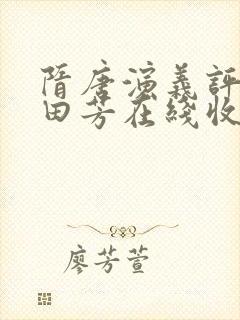 隋唐演義評
田芳在綫收
廖芳萱